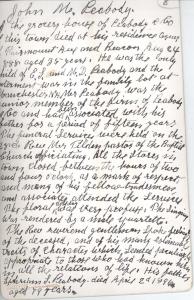 John M. Peabody.
The grocery house of Peabody & Co
this town died at his residence corner
Fairmount Ave and Beacon Aug 24
1888 aged 38 years. He was the
child of and M. D. Peabody and the
interment was in the family lot at
Manchester. Mr Peabody was the
junior member of the firm of Peabody
& Co and had associated with his
father for a period of fifteen years
The funeral services were held on the
Rev Mr. Tilden pastor of the Baptist
Church officiating. All the stores in
town closed between the hours of two
and four o'clock, as a mark of respect
and many of his fellow townsmen
and associates attended the services
The floral were profuse. The singing
was rendered by a male quartette.
The Rev reverend gentleman spoke feelingly
of the deceased, and of his many estimable
traits of character, which seemed peculiarly
appropriate to those who had known him
in all the relations of life. His father
Ephraim L. Peabody, died April 22 1896
aged 79 years.